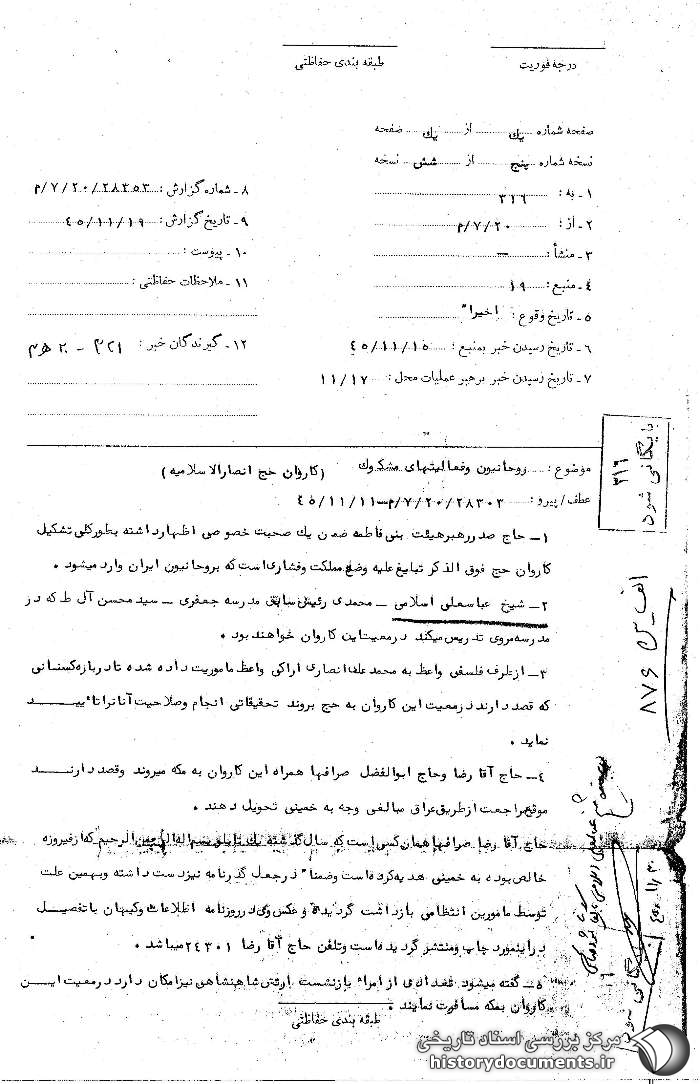 درجه فوریت
طبقه بندی حفاظتی
صفحه شماره یك از یك صفحه
نسخه شماره پنج از شش نسخه
۱ـ به : ۳۱۶
۲ـ از: ۷/۲۰/م
۳ـ منشأ : —
۴ـ منبع : ۱۹
۵ـ تاریخ وقوع : اخیرا"
۶ـ تاریخ رسیدن خبر بمنبع : ۴۵/۱۱/۱۵
۷ـ تاریخ رسیدن خبر برهبر عملیات محل : ۱۱/۱۷
۸ـ شماره گزارش : ۲۸۳۵۳/۷/۲۰/م
۹ـ تاریخ گزارش : ۴۵/۱۱/۱۹
۱۰ـ پیوست :
۱۱ـ ملاحظات حفاظتی :
۱۲ـ گیرندگان خبر : ۳۲۱ - ۲۰ هـ م
موضوع : روحانیون وفعالیتهای مشکوك (کاروان حج انصارالاسلامیه)
عطف/پیرو : ۲۸۳۰۳/۷/۲۰/م-۴۵/۱۱/۱۱
۱ـ حاج صدررهبرهیئت بنی فاطمه ضمن یك صحبت خصوصی اظهارداشته بطورکلی تشکیل
کاروان حج فوق الذکر تبلیغ علیه وضع مملکت وفشاری است که بروحانیون ایران وارد میشود .
۲ـ شیخ عباسعلی اسلامی ـ محمدی رئیس سابق مدرسه جعفری ـ سید محسن آل طه که در
مدرسه مروی تدریس میکند درمعیت این کاروان خواهند بود .
۳ـ ازطرف فلسفی واعظ به محمد علی انصاری اراکی واعظ ماموریت داده شده تا درباره کسانی
که قصد دارند درمعیت این کاروان به حج بروند تحقیقاتی انجام وصلاحیت آنانرا تائیـــد
نماید .
۴ـ حاج آقا رضا وحاج ابوالفضل صرافها همراه این کاروان به مکه میروند وقصد دارنـــد
موقع مراجعت ازطریق عراق مبالغی وجه به خمینی تحویل دهند .
حاج آقا رضا صرافها همان کسی است که سال گذشته یك تابلو بسم اله الرحمن الرحیم که از فیروزه
خالص بوده به خمینی هدیه کرده است وضمنا" درجعل گذرنامه نیزدست داشته وبهمین علت
توسط مامورین انتظامی بازداشت گردیده و عکس وی درروزنامه اطلاعات وکیهان با تفصیل
دراینمورد چاپ ومنتشر گردیده است وتلفن حاج آقا رضا ۲۴۳۰۱ میباشد .
۵ـ گفته میشود تعدادی از امراء بازنشست ارتش شاهنشاهی نیزامکان دارد درمعیت ایـن
کاروان بمکه مسافرت نمایند .
طبقه بندی حفاظتی
بایگانی شود
۳۱۶
الف س ۸۷۶
بایگانی شود
۱۱/۳۰
مرکز بررسی اسناد تاریخی
historydocuments.ir